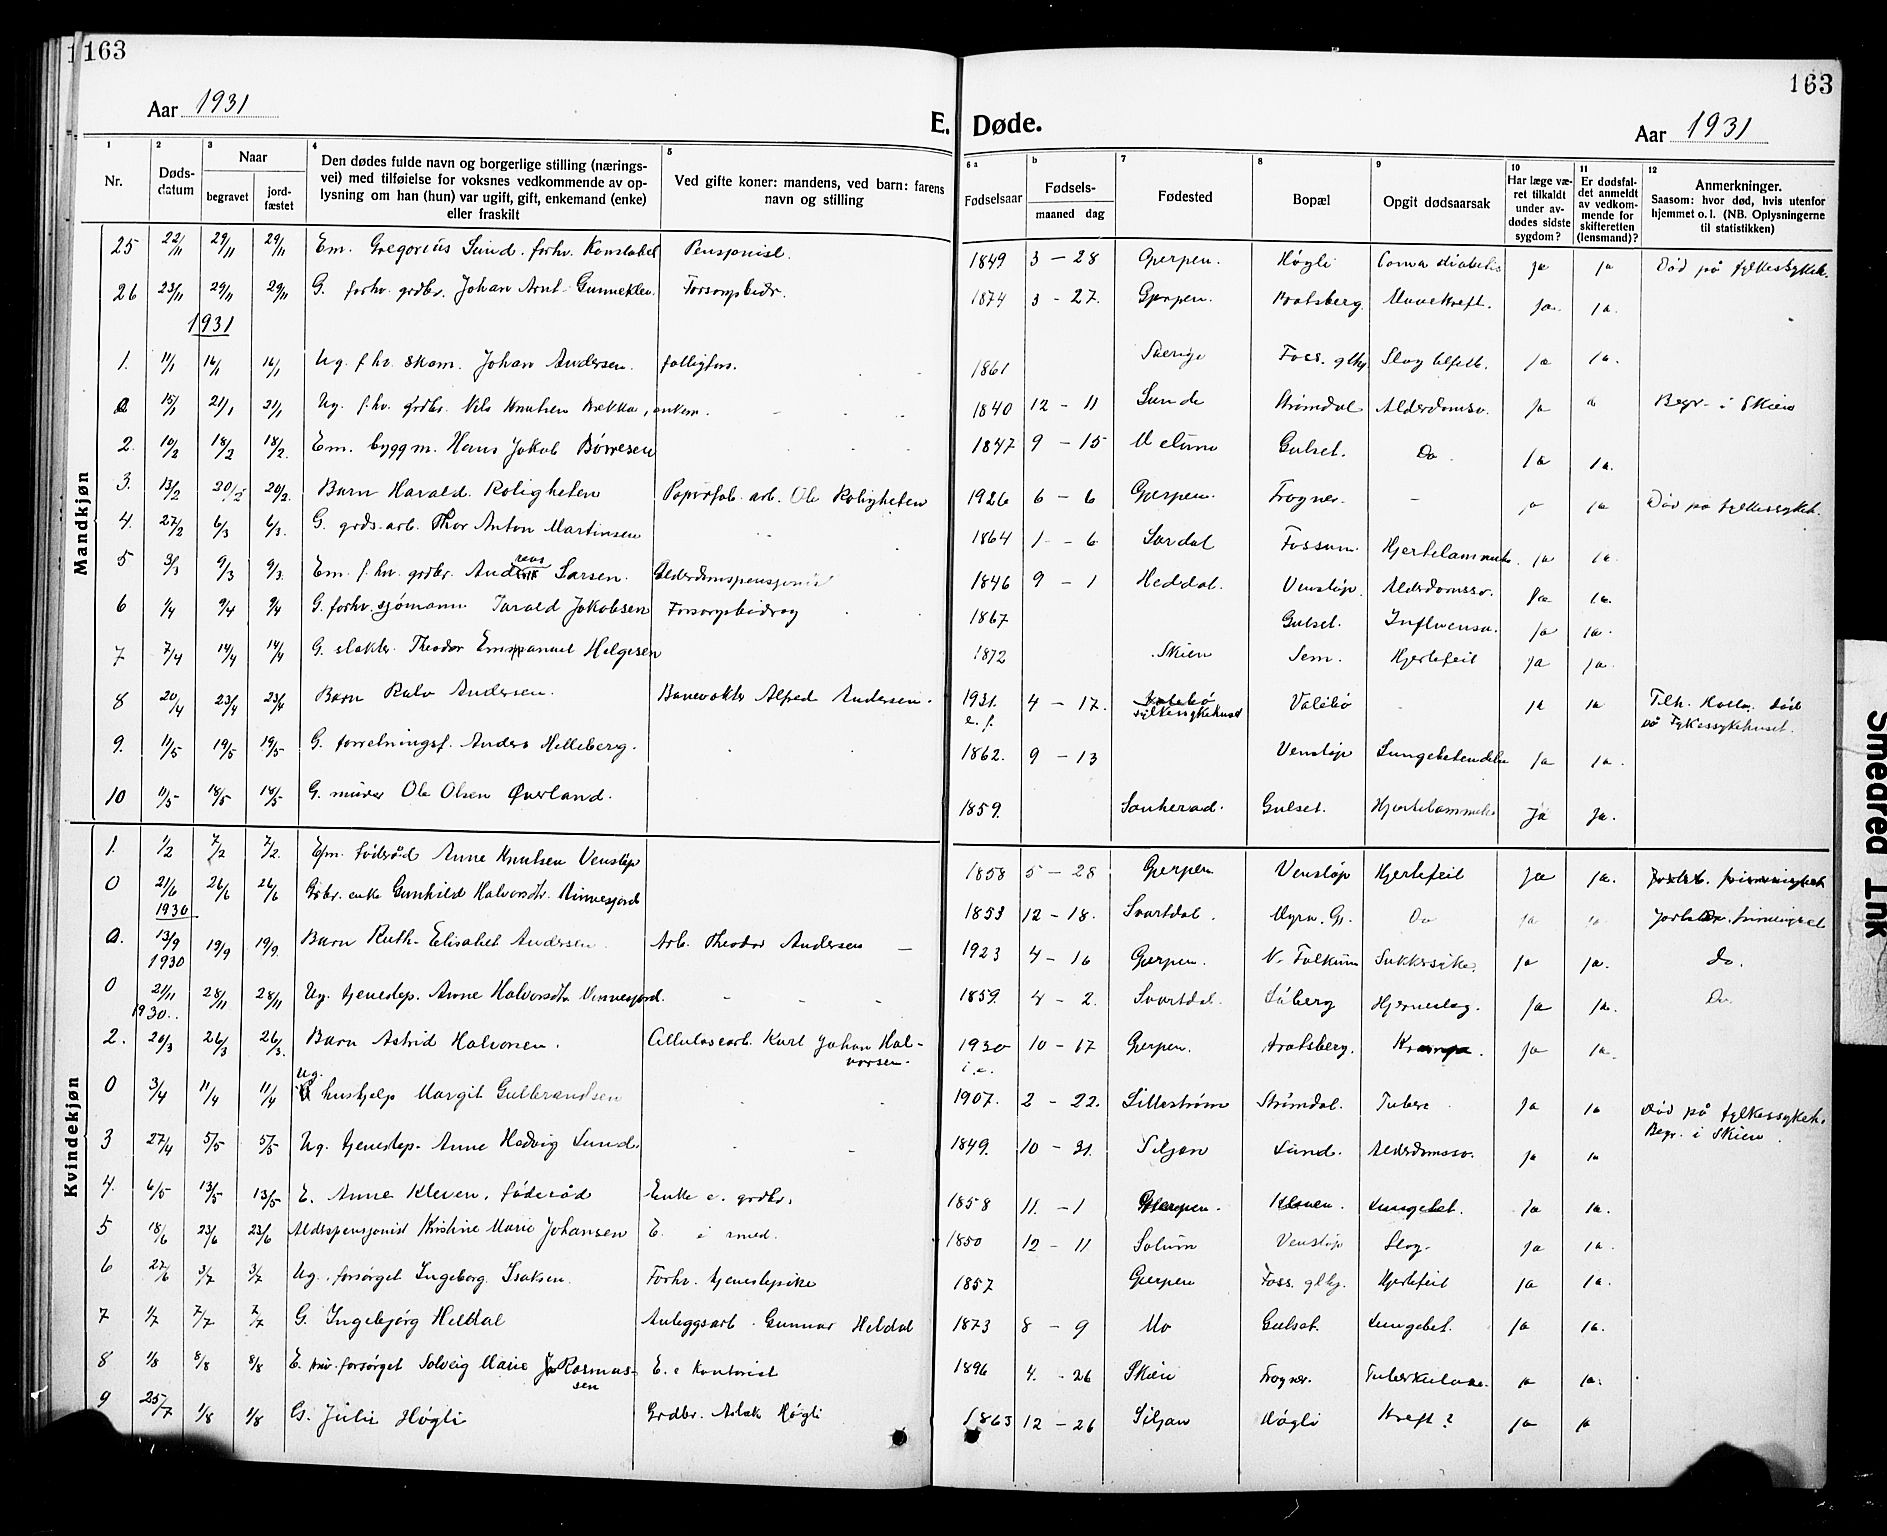 163
163
Aar 1931
E. Døde.
Aar 1931
1 2 3 4 5 6a b 7 8 9 10 11 12
Nr.
Døds-
datum
Naar
begravet
jord-
fæstet
Den dødes fulde navn og borgerlige stilling (nærings-
vei) med tilføielse for voksnes vedkommende av op-
lysning om han (hun) var ugift, gift, enkemand (enke)
eller fraskilt
Ved gifte koner: mandens, ved barn: farens
navn og stilling
Fødselsaar
Fødsels-
maaned dag
Fødested
Bopæl
Opgit dødsaarsak
Har læge væ-
ret tilkaldt
under av-
dødes sidste
sygdom?
Er dødsfal-
det anmeldt
av vedkom-
mende for
skifteretten
(lensmand)?
Anmerkninger.
Saasom: hvor død, hvis utenfor
hjemmet o. l. (NB. Oplysningerne
til statistikken)
Mandkjøn
25 22/11 29/11 29/11 Em. Gregorius Lund. forhv. Konstabel Pensjonist. 1849 3 - 28 Gjerpen. Høgli Coma diabetes ja ja Død på fylkessykeh.
26 23/11 29/11 29/11 G. forhv. grdbr. Johan Arnt Gunneklev. Forsorgsbidr. 1874 3 - 27. Gjerpen. Bratsberg Mavekreft. ja. ja.
1931
1. 11/1 16/1 16/1 Ug. f. hv. skom. Johan Andersen. fattigfors. 1861 Sverige Foss. glhj. Slagtilfelle. ja ja.
15/1 21/1 21/1 Ug. f. hv. grdbr. Nils Knutsen Brekka, enkem. 1840 12 - 11 Lunde Strømdal Alderdomssv. ja Begr. i Skien
2. 10/2 18/2 18/2. Em. byggm. Hans Jakob Børresen 1847 9 - 15 Melum Gulset. Do ja ja.
3. 13/2 20/2 20/2. Barn Harald Roligheten Papirfab. arb. Ole Roligheten 1926 6 - 6 Gjerpen. Frogner. - ja ja Død på fylkessykeh.
4. 27/2 6/3 6/3. G. grds. arb. Thor Anton Martinsen 1864 1 - 6 Fossum. Hjertelammelse. ja ja.
5 3/3 9/3 9/3. Em. f. hv. grdbr. Andreas Larsen. Alderdomspensjonist 1846 9 - 1 Heddal. Venstøp. Alderdomssv. ja ja.
6 1/4 9/4 9/4 G. forhv. sjømann Tarald Jakobsen Forsorgsbidrag 1867 Gulset. Influensa. ja ja.
7 7/4 14/4 14/4 G. slakter. Theodor Emmanuel Helgesen 1872 Skien Sem. Hjertefeil ja ja.
8 20/4 23/4 23/4 Barn Rolv Andersen. Banevokter Alfred Andersen. 1931. 4 - 17. Valebø Valebø ja ja Tilh. Holla. død
e. f. fylkessykehuset på Fylkessykehuset.
9. 11/5 19/5 19/5 G. forretningsf. Anders Helleberg. 1862. 9 - 13 Venstøp Lungebetendelse ja ja.
10 11/5 18/5 18/5 G. murer Ole Olsen Øverland. 1859. Sauherad. Gulset. Hjertelammelse Ja Ja.
Kvindekjøn
1. 1/2 7/2 7/2. Em. føderåd Anne Knutsen Venstøp 1858 5 - 28 Gjerpen Venstøp Hjertefeil ja ja.
0 21/6 26/6 26/6 Grbr. enke Gunhild Halvorsdtr. Vinnesjord 1853 12 - 18. Svartdal. Myra. Gj. Do ja ja
1930
13/9 19/9 19/9. Barn Ruth Elisabet Andersen. Arb. Theodor Andersen - 1923 4 - 16 Gjerpen. N. Falkum Sukkersyke. ja ja. Do.
1930
0 21/11 28/11 28/11 Ug. tjenestep. Anne Halvorsdtr. Vinnesjord. 1859. 4 - 2. Svartdal. Hjerneslag. ja ja. Do.
1930.
2. 20/3 26/3 26/3. Barn Astrid Halvorsen. Cellulosearb. Kurt Johan Hal-
vorsen. 1930 10 - 17 Gjerpen. Bratsberg. Krampe. ja ja.
0 3/4 11/4 11/4 Ug. hushjelp Margit Gulbrandsen 1907. 2 - 22. Lillestrøm Strømdal. ja ja Død på fylkessykeh.
Begr. i Skien
3 27/4 5/5 5/5. Ug. tjenestep. Anne Hedvig Lund. 1849. 10 - 31. Siljan Lund. Alderdomssv. ja ja
4. 6/5 13/5 13/5 E. Anne Kleven. føderåd Enke e. grdbr. 1858 11. - 1 Gjerpen. Kleven. Lungebet. ja ja.
5 18/6 23/6 23/6 Alderspensjonist Kristine Marie Johansen E. e smed. 1850 12 - 11 Solum Venstøp Slag. ja ja.
6 27/6 3/7 3/7 Ug. forsørget Ingeborg Isaksen. Forhv. tjenestepike 1857 Gjerpen Foss. glhj. Hjertefeil ja ja.
7 1/7 7/7 7/7 G. Ingebjørg Heldal Anleggsarb. Gunnar Heldal 1873 8 - 9 Mo Gulset. Lungebet. ja ja.
8 1/8 8/8 8/8 E. priv. forsørget Solveig Marie Rasmus-
sen E. e Kontorist 1896 4. - 26 Skien Frogner. Tuberkulose. ja ja.
9 25/7 1/8 1/8 G. Julie Høgli Grdbr. Aslak Høgli 1863 12 - 26 Siljan Høgli Kreft? ja ja
Smeared Ink